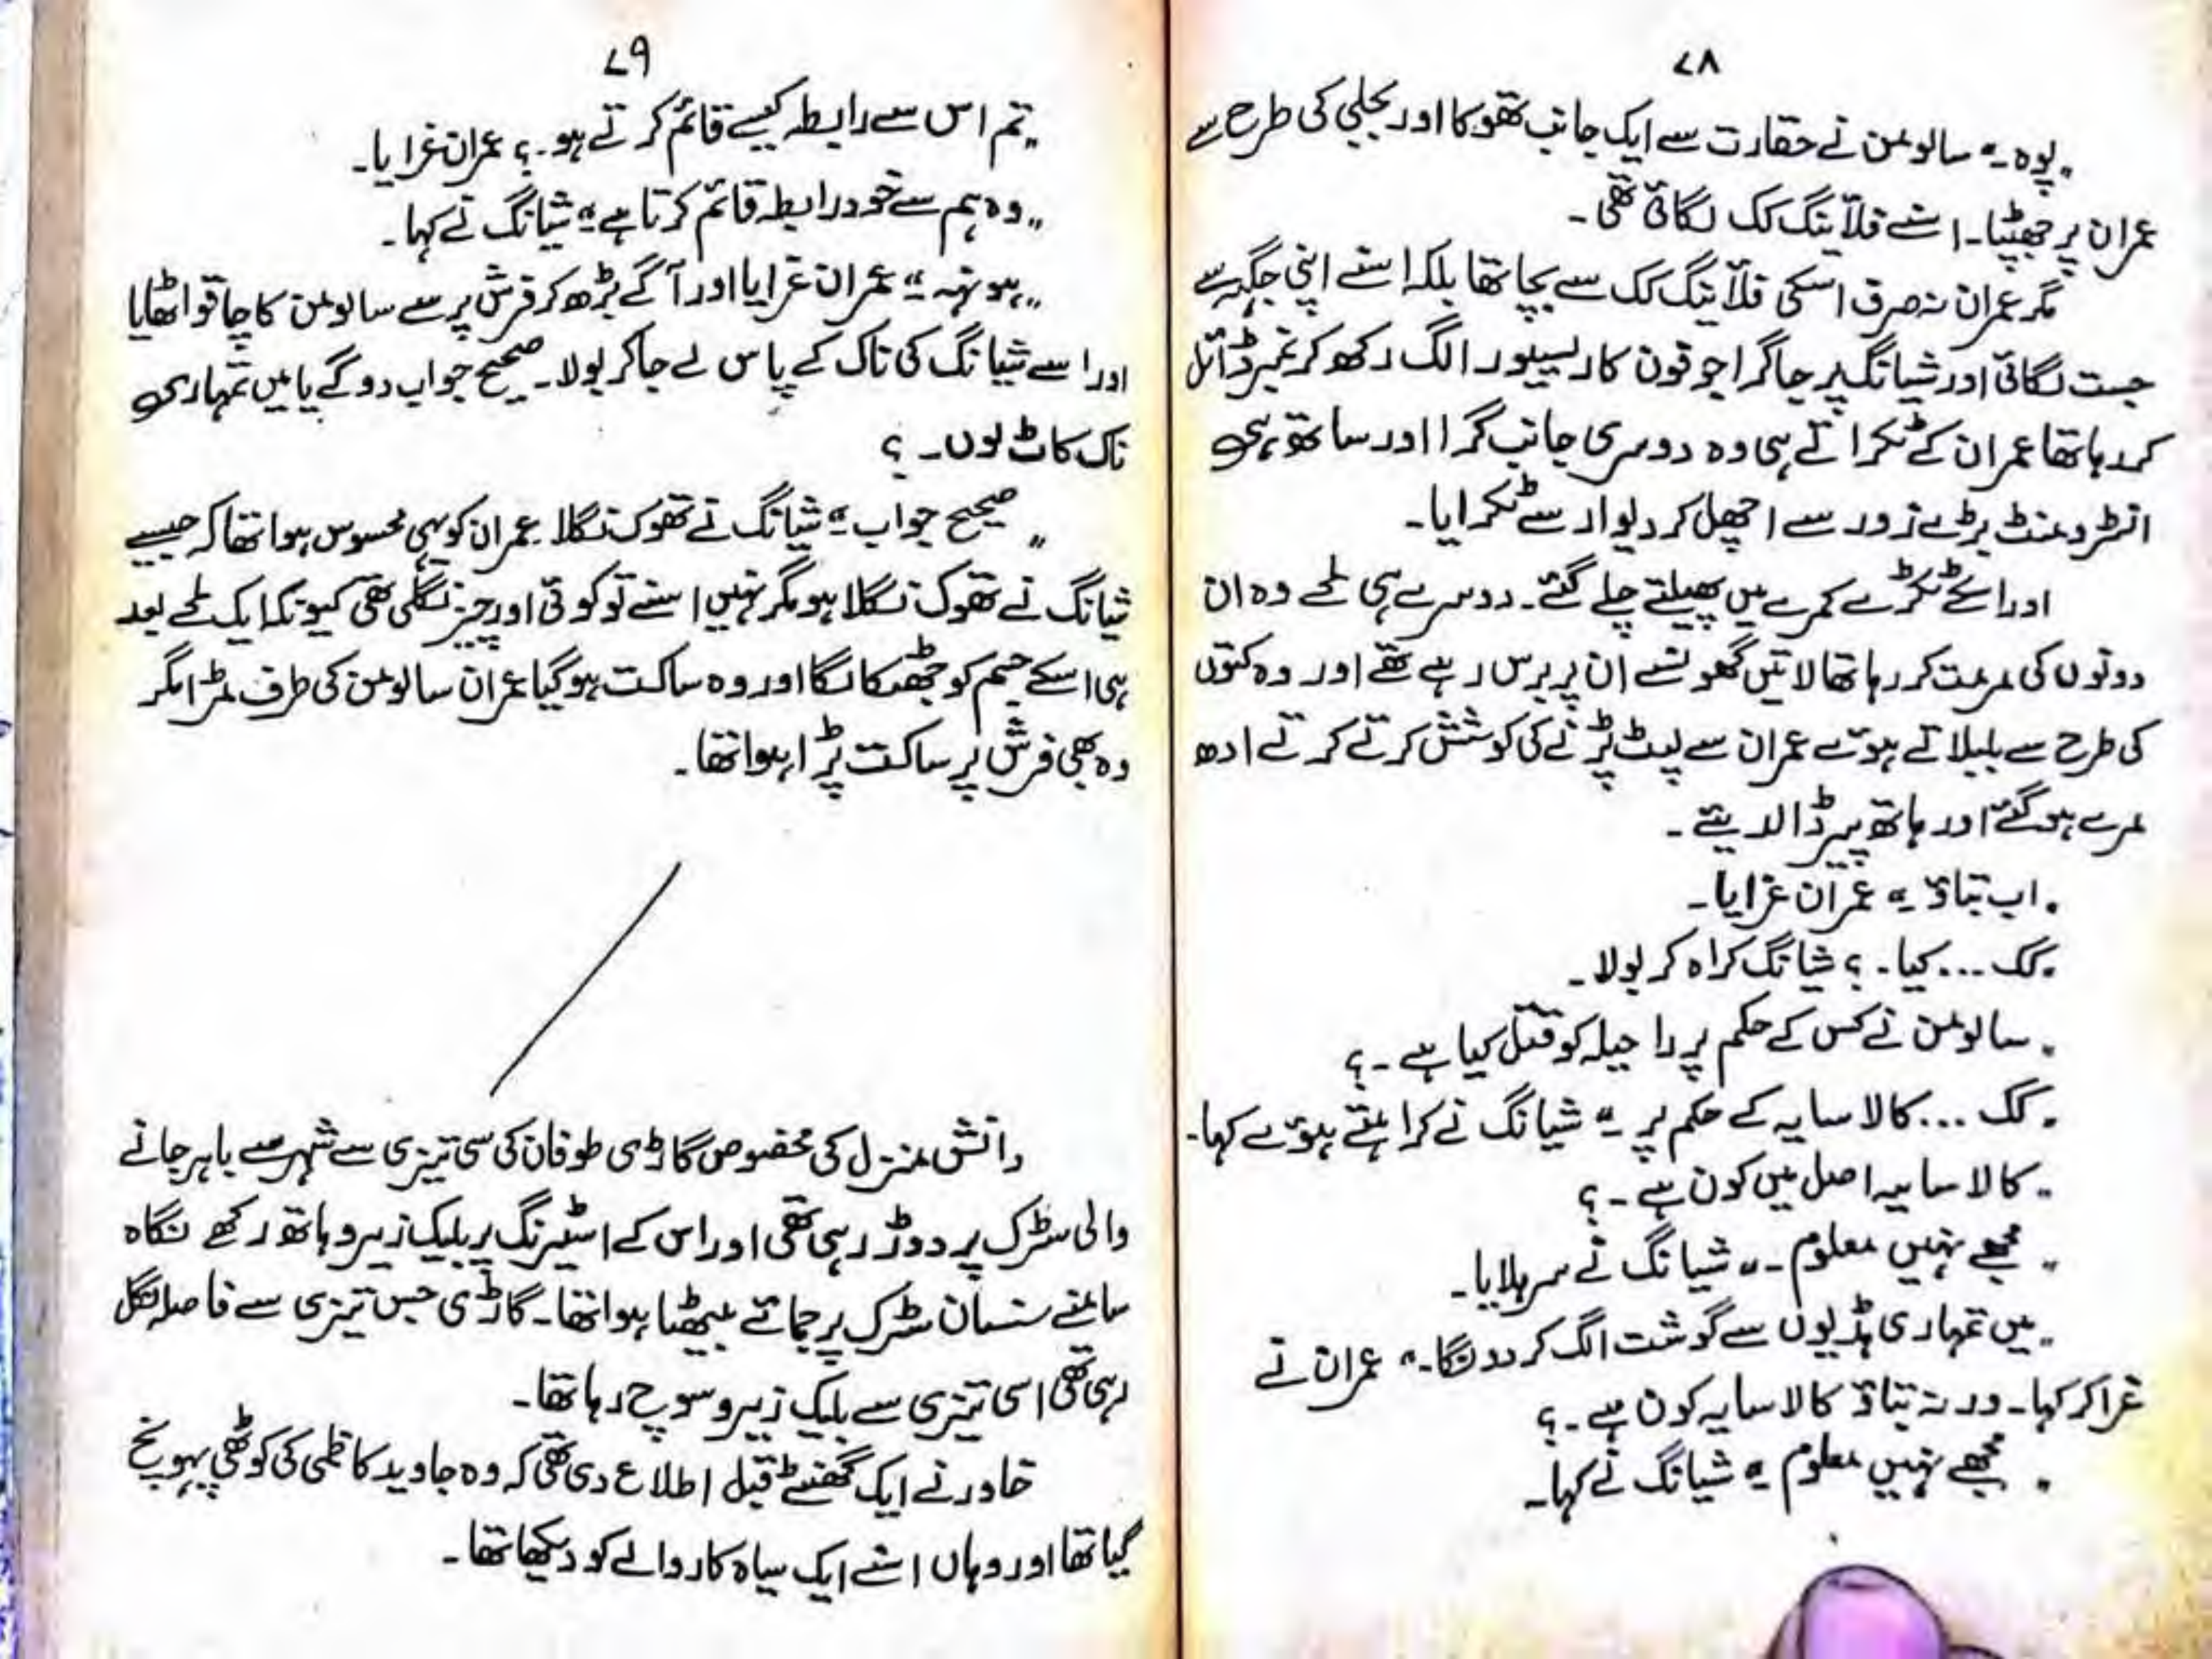 ۷۸
"پوہ۔" سالومن نے حقارت سے ایک جانب تھوکا اور بجلی کی طرح سے
عمران پر جھپٹا۔ اسنے فلائینگ کک لگائی تھی۔
مگر عمران نہ صرف اسکی فلائینگ کک سے بچا تھا بلکہ اسنے اپنی جگہ سے
جست لگائی اور شیانگ پر جاگرا جو فون کا ریسیور الگ رکھ کر نمبر ڈائل
کر رہا تھا عمران کے ٹکراتے ہی وہ دوسری جانب گرا اور ساتھ ہی
انسٹرومنٹ بڑے زور سے اچھل کر دیوار سے ٹکرایا۔
اور اسکے ٹکڑے کمرے میں پھیلتے چلے گئے۔ دوسرے ہی لمحے وہ ان
دونوں کی مرمت کر رہا تھا لاتیں گھونسے ان پر برس رہے تھے اور وہ کتوں
کی طرح سے بلبلاتے ہوئے عمران سے لپٹ پڑنے کی کوشش کرتے کرتے ادھ
مرے ہوگئے اور ہاتھ پیر ڈالدیئے۔
"اب بتاؤ۔" عمران غرایا۔
"کک ... کیا۔؟ شیانگ کراہ کر بولا۔
"سالومن نے کس کے حکم پر راحیلہ کو قتل کیا ہے۔؟
"کک ... کالا سایہ کے حکم پر۔" شیانگ نے کراہتے ہوئے کہا۔
"کالا سایہ اصل میں کون ہے۔؟
"مجھے نہیں معلوم۔" شیانگ نے سر ہلایا۔
"میں تمہاری ہڈیوں سے گوشت الگ کردونگا۔" عمران نے
غرا کر کہا۔ ورنہ بتاؤ کالا سایہ کون ہے۔؟
"مجھے نہیں معلوم۔" شیانگ نے کہا۔
۷۹
"تم اس سے رابطہ کیسے قائم کرتے ہو۔؟ عمران غرایا۔
"وہ ہم سے خود رابطہ قائم کرتا ہے۔" شیانگ نے کہا۔
"ہونہہ۔" عمران غرایا اور آگے بڑھ کر فرش پر سے سالومن کا چاقو اٹھایا
اور اسے شیانگ کی ناک کے پاس لے جاکر بولا۔ صحیح جواب دو گے یا میں تمہاری
ناک کاٹ لوں۔؟
"صحیح جواب۔" شیانگ نے تھوک نگلا عمران کو یہی محسوس ہوا تھا کہ جیسے
شیانگ نے تھوک نگلا ہو مگر نہیں اسنے تو کوئی اور چیز نگلی تھی کیونکہ ایک لمحے بعد
ہی اسکے جسم کو جھٹکا لگا اور وہ ساکت ہوگیا عمران سالومن کی طرف مڑا مگر
وہ بھی فرش پر ساکت پڑا ہوا تھا۔
دانش منزل کی مخصوص گاڑی طوفان کی سی تیزی سے شہر سے باہر جانے
والی سڑک پر دوڑ رہی تھی اور اس کے اسٹیرنگ پر بلیک زیرو ہاتھ رکھے نگاہ
سامنے سنسان سڑک پر جمائے بیٹھا ہوا تھا۔ گاڑی جس تیزی سے فاصلہ نگل
رہی تھی اسی تیزی سے بلیک زیرو سوچ رہا تھا۔
خاور نے ایک گھنٹے قبل اطلاع دی تھی کہ وہ جاوید کاظمی کی کوٹھی پہونچ
گیا تھا اور وہاں اسنے ایک سیاہ کار والے کو دیکھا تھا۔